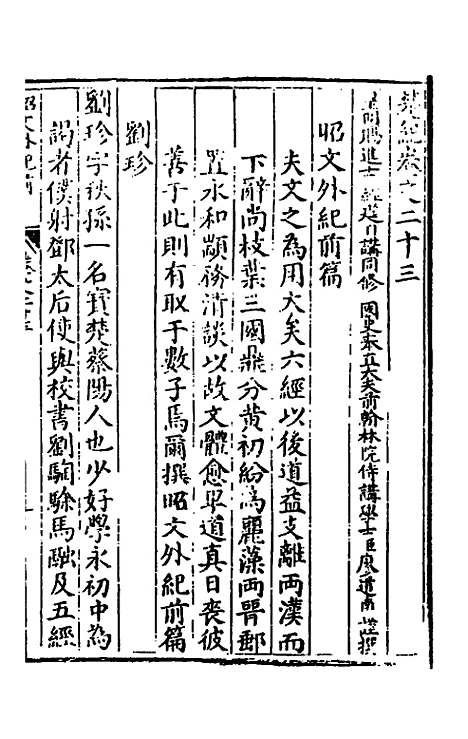 楚紀卷之二十三
賜進士 經筵日講同修 國史奉直大夫前翰林院侍講學士臣廖道南謹撰
昭文外紀前篇
夫文之為用大矣六經以後道益支離兩漢而
下辭尚枝葉三國鼎分黃初紛為麗藻兩晉郵
置永和顓務清談以故文體愈卑道真日喪彼
善于此則有取于數子焉爾撰昭文外紀前篇
劉珍
劉珍字秋孫一名寶楚蔡陽人也少好學永初中為
謁者僕射鄧太后使與校書劉騊駼馬融及五經
昭文外紀前